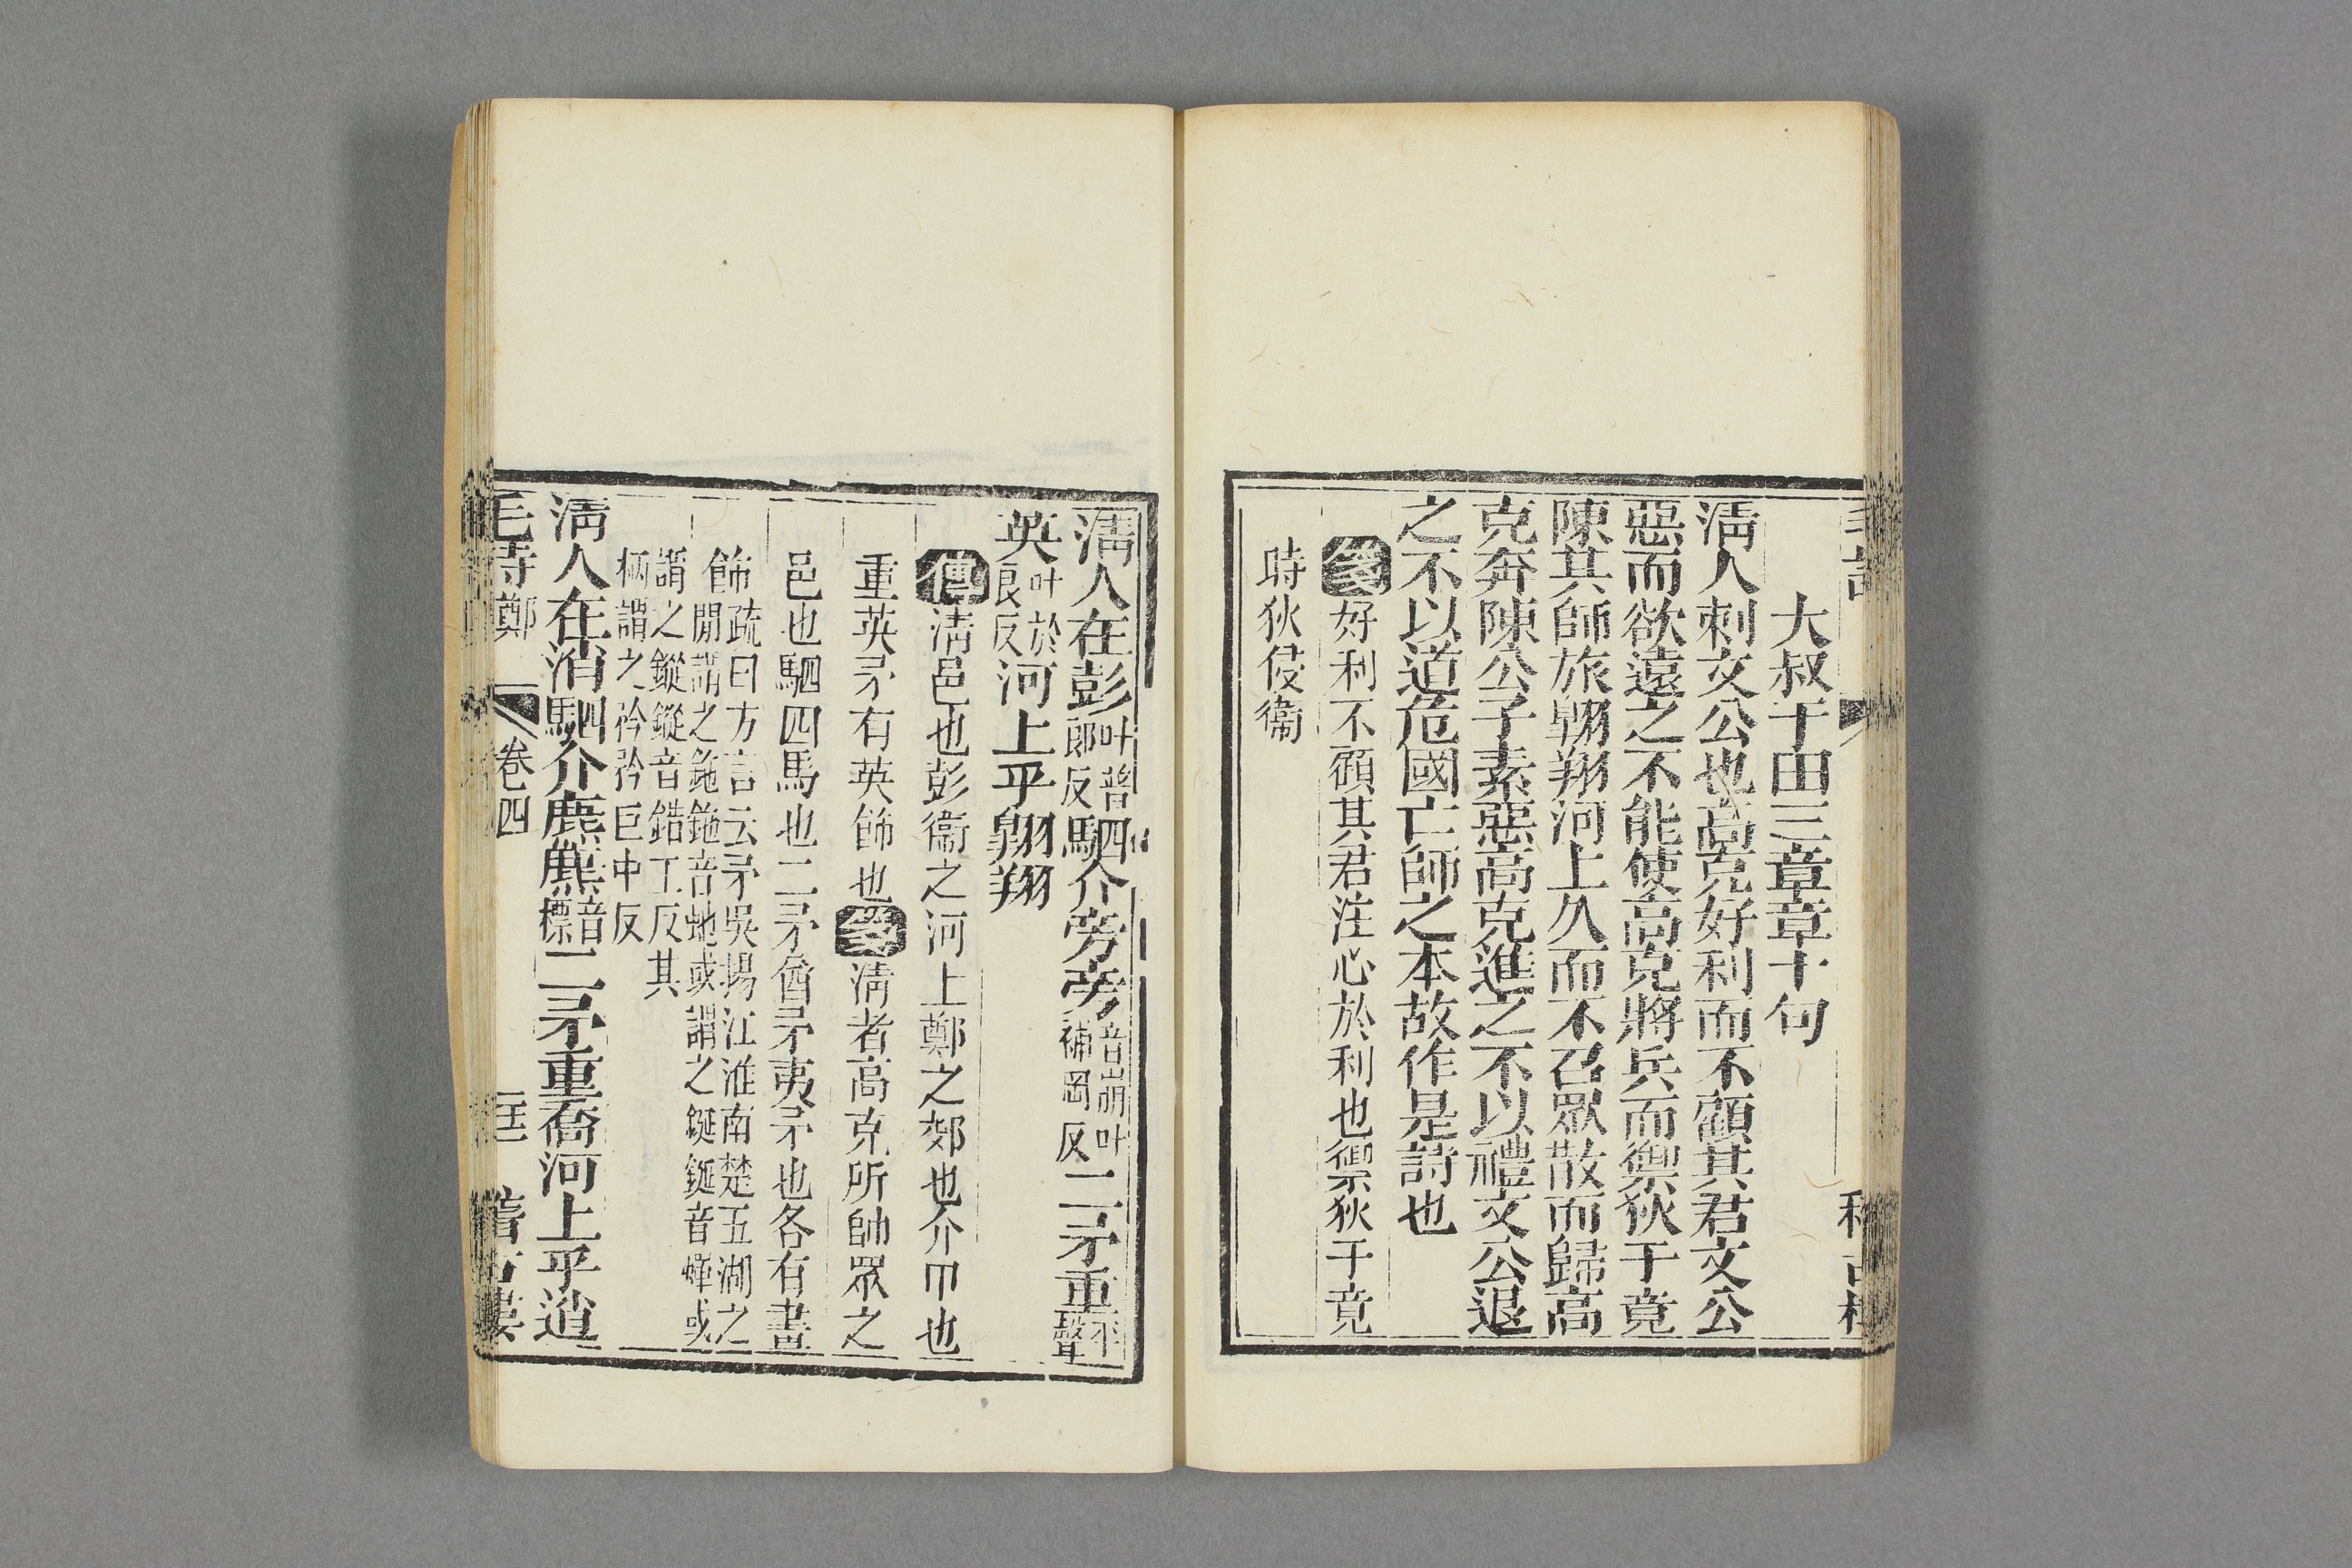 大叔于田三章章十句
清人刺文公也高克好利而不顧其君文公
惡而欲遠之不能使高克將兵而禦狄于竟
陳其師旅翺翔河上久而不召眾散而歸高
克奔陳公子素惡高克進之不以禮文公退
之不以道危國亡師之本故作是詩也
箋好利不顧其君注心於利也禦狄于竟
時狄侵衞
清人在彭叶普郎反駟介旁旁音崩叶補岡反二矛重平聲
英叶於良反河上乎翺翔
傳清邑也彭衞之河上鄭之郊也介甲也
重英矛有英飾也箋清者高克所帥眾之
邑也駟四馬也二矛酋矛夷矛也各有畫
飾疏曰方言云矛吳揚江淮南楚五湖之
閒謂之鍦鍦音虵或謂之鋋鋋音蟬或
謂之鏦鏦音錯工反其
柄謂之矜矜巨巾反
清人在消駟介麃麃音標二矛重喬河上乎逍
毛詩鄭 卷四